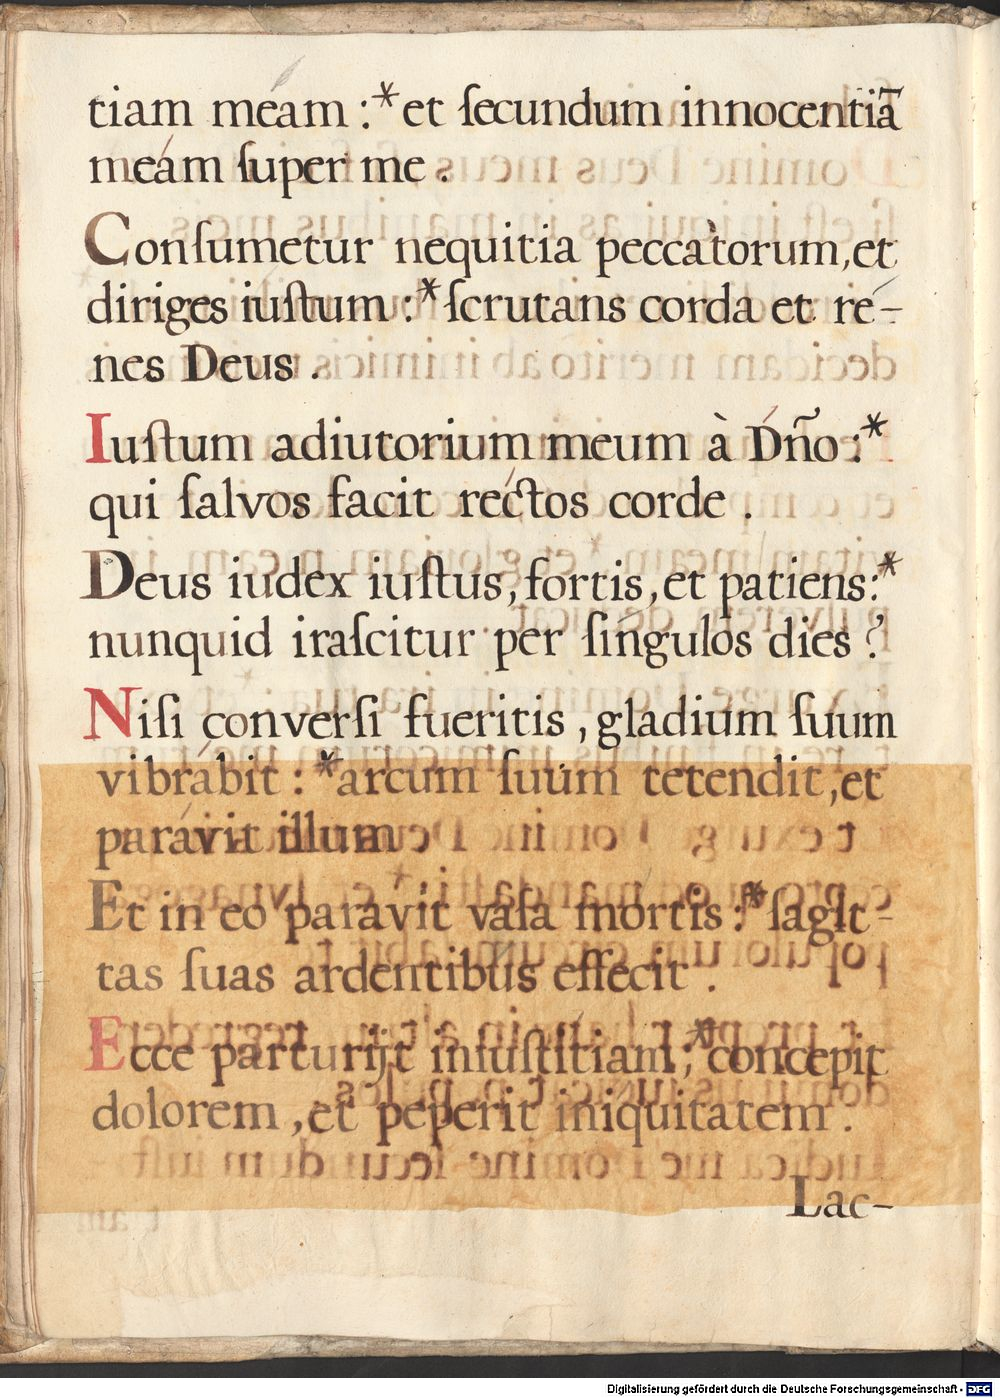 tiam meam :* et ſecundum innocentiã
meám ſuper me .
Conſumetur nequitia peccàtorum, et
diriges iuſtum : * ſcrutans corda et ré-
nes Deus .
Iuſtum adiutorium meum à Dño :*
qui ſalvos facit rectos corde .
Deus iudex iuſtus, fortis, et patiens :*
nunquid iraſcitur per ſingulos dies ?
Niſi converſi fueritis , gladium ſuum
vibrábit : * arcum ſuum tetendit, et
parávit illum
Et in eo paravit vaſa mortis : * ſagit-
tas ſuas ardentibus effecit .
Ecce parturijt iniuſtitiam ; * concepit
dolorem , et peperit iniquitatem .
Lac-
Digitalisierung gefördert durch die Deutsche Forschungsgemeinschaft - DFG